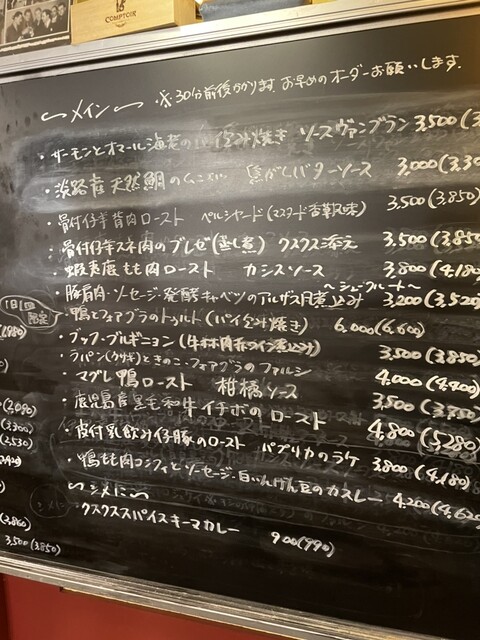 COMPTOIR
〜メイン〜 ※30分前後かかります。お早めのオーダーお願いします。
・サーモンとオマール海老のパイ包み焼き ソースヴァンブラン 3,500(3
・淡路産天然鯛の 焦がしバターソース 3,000(3,30
・骨付仔羊背肉ロースト ペルシヤード(マスタード香草風味) 3,500(3,850)
・骨付仔羊スネ肉のブレゼ(蒸し煮) クスクス添え 3,500(3,850
・蝦夷鹿もも肉ロースト カシスソース 3,800(4,180)
・豚肩肉・ソーセージ・発酵キャベツのアルザス風煮込み 〜シュークルート〜 3,200(3,520)
1日1組限定
・鴨とフォアグラのトゥルト(パイ包み焼き) 6,000(6,600)
・ブッフ・ブルギニョン(牛ホホ肉赤ワイン煮込み) 3,500(3,850)
・ラパン(ウサギ)ときのこ・フォアグラのファルシ 4,000(4,400)
・マグレ鴨ロースト 柑橘ソース 3,500(3,850)
・鹿児島産黒毛和牛イチボのロースト 4,800(5,280)
・皮付乳飲み仔豚のロースト パプリカのラケ 3,800(4,180)
・鴨もも肉コンフィとソーセージ・白いんげん豆のカスレー 4,200(4,620
〜〆に〜
・クスクススパイスキーマカレー 900(990)
3,500(3,850)